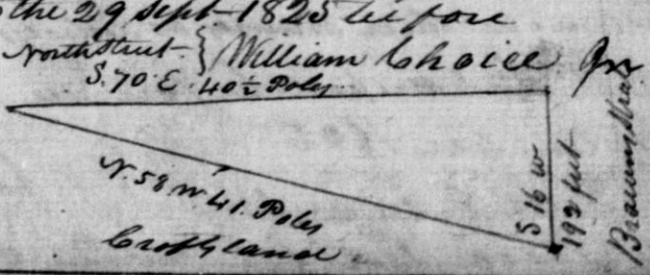 the 29 Sept. 1825 before
North Street } William Choice Jn
S. 70 E. 40½ Poles
N. 58 W 41. Poles
S 16 W
192 feet